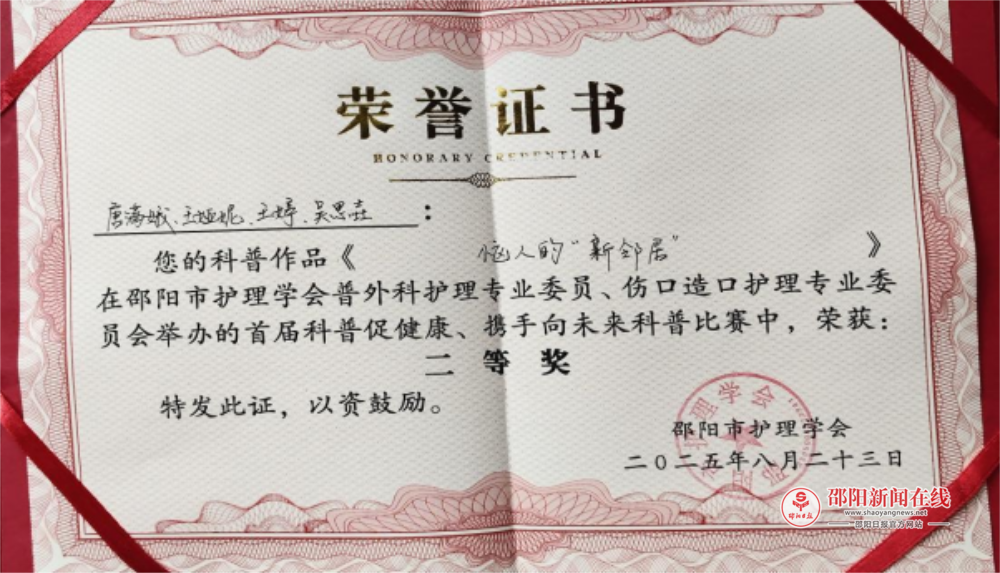 荣誉证书
HONORARY CREDENTIAL
唐满娥、王娅妮、王婷、吴思垚：
您的科普作品《 恼人的“新邻居” 》
在邵阳市护理学会普外科护理专业委员、伤口造口护理专业委
员会举办的首届科普促健康、携手向未来科普比赛中，荣获：
二等奖
特发此证，以资鼓励。
邵阳市护理学会
二〇二五年八月二十三日
邵阳新闻在线
www.shaoyangnews.net
邵阳日报官方网站
邵阳日报